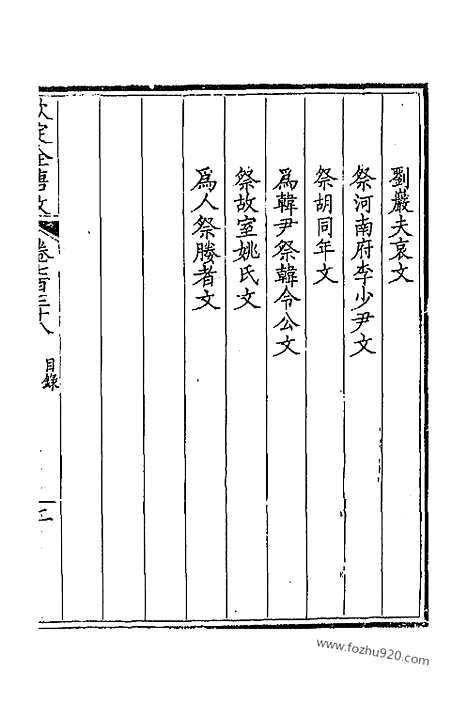 劉巖夫哀文
祭河南府李少尹文
祭胡同年文
爲韓尹祭韓令公文
祭故室姚氏文
爲人祭媵者文
欽定全唐文
卷七百三十八
目錄
二
www.fozhu920.com